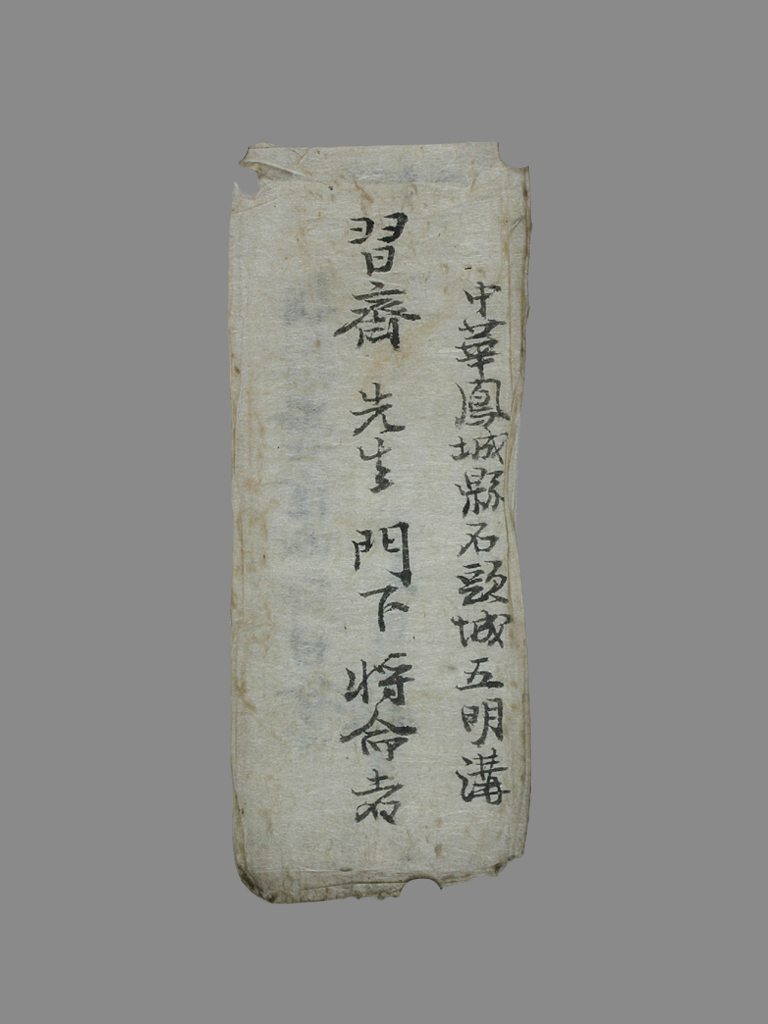 中華鳳城縣石頭城五明溝
習齋先生門下將命者